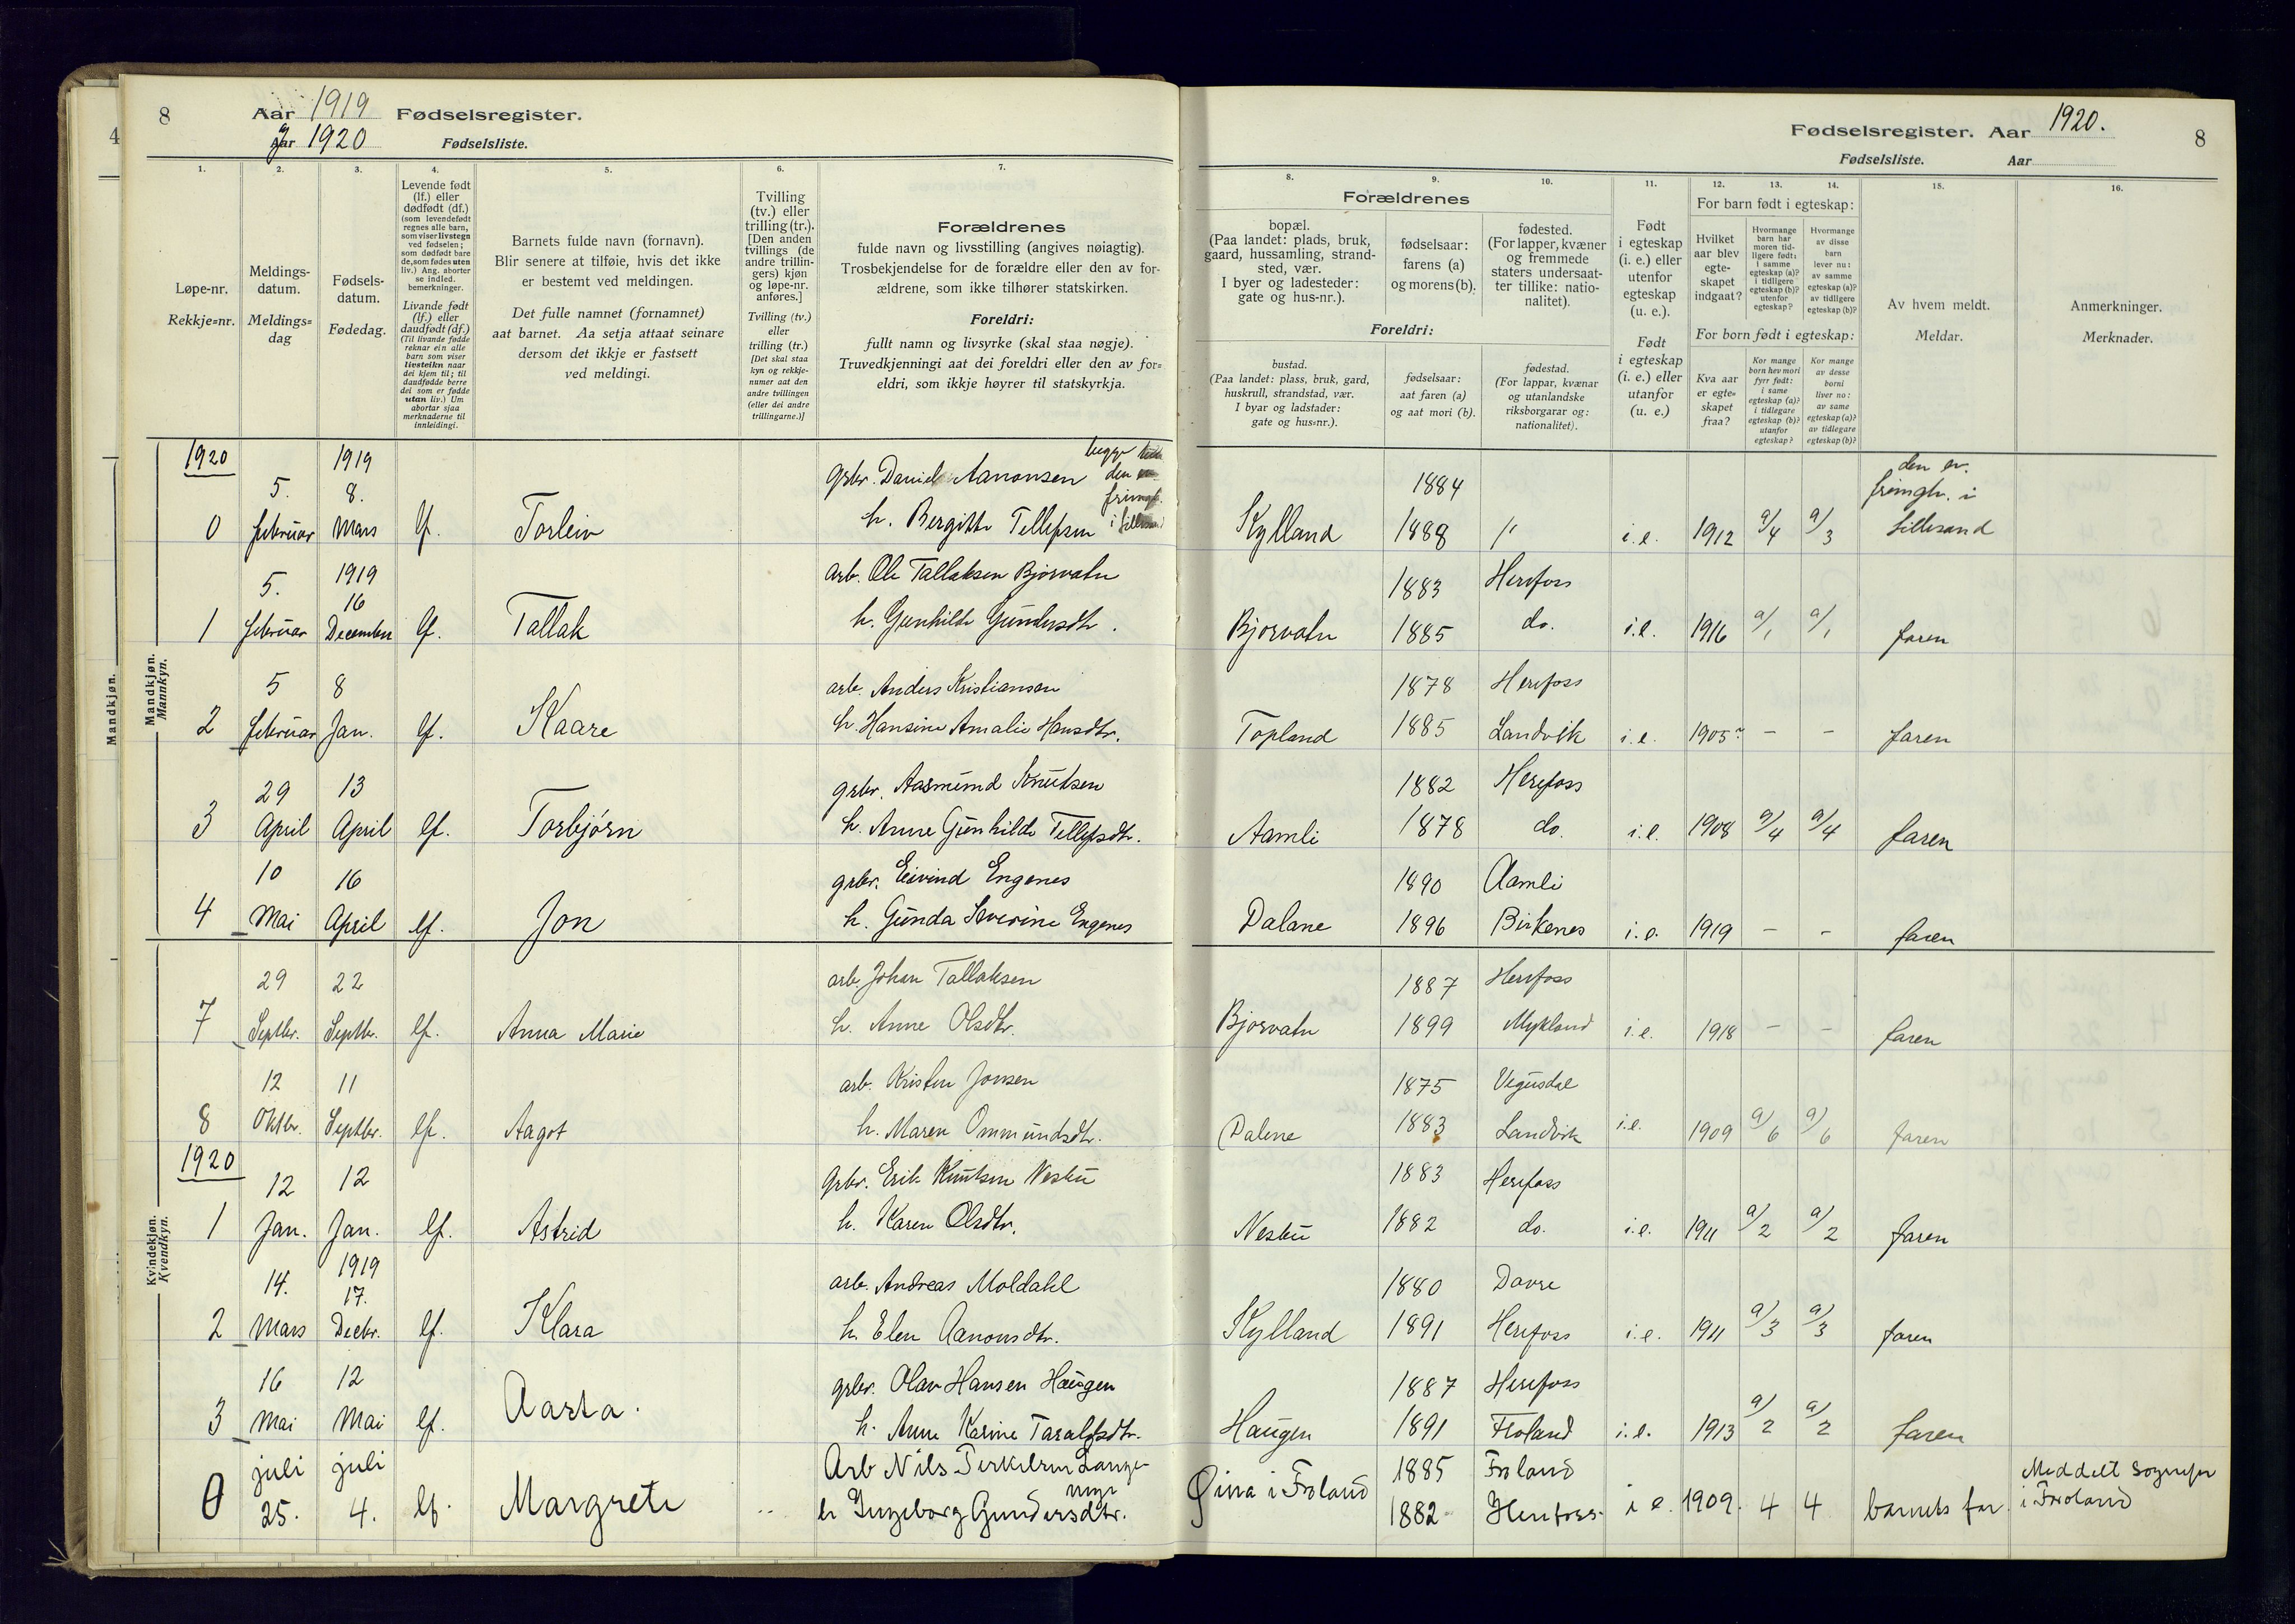 8 Aar 1919 Fødselsregister.
Aar 1920 Fødselsliste.
Fødselsregister. Aar 1920. 8
Fødselsliste. Aar
4
1. 2. 3. 4. 5. 6. 7.
Løpe-nr.
Rekkje=nr.
Meldings-
datum.
Meldings=
dag
Fødsels-
datum.
Fødedag.
Levende født
(lf.) eller
dødfødt (df.)
(som levendefødt
regnes alle barn,
som viser livstegn
ved fødselen;
som dødfødt bare
de, som fødes uten
liv.) Ang. aborter
se indled.
bemerkninger.
Livande født
(lf.) eller
daudfødt (df.)
(Til livande fødde
reknar ein alle
barn som viser
livsteikn naar
dei kjem til; til
daudfødde berre
dei som er fødde
utan liv.) Um
abortar sjaa
merknaderne til
innleidingi.
Barnets fulde navn (fornavn).
Blir senere at tilføie, hvis det ikke
er bestemt ved meldingen.
Det fulle namnet (fornamnet)
aat barnet. Aa setja attaat seinare
dersom det ikkje er fastsett
ved meldingi.
Tvilling
(tv.) eller
trilling (tr.).
[Den anden
tvillings (de
andre trillin-
gers) kjøn
og løpe-nr.
anføres.]
Tvilling (tv.)
eller
trilling (tr.)
[Det skal staa
kyn og rekkje-
numer aat den
andre tvillingen
(eller dei andre
trillingarne.)]
Forældrenes
fulde navn og livsstilling (angives nøiagtig).
Trosbekjendelse for de forældre eller den av for-
ældrene, som ikke tilhører statskirken.
Foreldri:
fullt namn og livsyrke (skal staa nøgje).
Truvedkjenningi aat dei foreldri eller den av for=
eldri, som ikkje høyrer til statskyrkja.
8. 9. 10. 11. 12. 13. 14. 15. 16.
Forældrenes
bopæl.
(Paa landet: plads, bruk,
gaard, hussamling, strand-
sted, vær.
I byer og ladesteder:
gate og hus-nr.).
fødselsaar:
farens (a)
og morens (b).
fødested.
(For lapper, kvæner
og fremmede
staters undersaat-
ter tillike: natio-
nalitet).
Foreldri:
bustad.
(Paa landet: plass, bruk, gard,
huskrull, strandstad, vær.
I byar og ladstader:
gate og hus=nr.).
fødselsaar:
aat faren (a)
og aat mori (b).
fødestad.
(For lappar, kvænar
og utanlandske
riksborgarar og:
nationalitet).
Født
i egteskap
(i. e.) eller
utenfor
egteskap
(u. e.).
Født
i egteskap
(i. e.) eller
utanfor
(u. e.)
For barn født i egteskap:
Hvilket
aar blev
egte-
skapet
indgaat?
Hvormange
barn har
moren tid-
ligere født:
i samme
egteskap (a)?
i tidligere
egteskap (b)?
utenfor
egteskap?
Hvormange
av disse
barn
lever nu:
av samme
egteskap (a)?
av tidligere
egteskap (b)?
For born født i egteskap:
Kva aar
er egte=
skapet
fraa?
Kor mange
born hev mori
fyrr født:
i same
egteskap (a)?
i tidlegare
egteskap (b)?
utanfor
egteskap?
Kor mange
av desse
borni
liver no:
av same
egteskap (a)?
av tidlegare
egteskap (b)?
Av hvem meldt.
Meldar.
Anmerkninger.
Merknader.
Mandkjøn.
Mandkjøn.
Mannkyn.
1920 1919 begge
5. 8. grbr. Daniel Aanonsen den 1884 den ev.
frimgh. i
0 februar Mars lf. Torleiv h. Bergitte Tellefsen Kylland 1888 " i.e. 1912 a/4 a/3 Lillesand
5. 1919 16 arb. Ole Tallaksen Bjorvatn 1883 Herefoss
1 februar December lf. Tallak h. Gunhilde Gundersdtr. Bjorvatn 1885 do. i.e. 1916 a/1 a/1 faren
5 8 arb. Anders Kristiansen 1878 Herefoss
2 februar Jan. lf. Kaare h. Hansine Amalie Hansdtr. Topland 1885 Landvik i.e. 1905? - - faren
29 13 grbr. Aasmund Knutsen 1882 Herefoss
3 April April lf. Torbjørn h. Anne Gunhilde Tellefsdtr. Aamli 1878 do. i.e. 1908 a/4 a/4 faren
10 16 grbr. Eivind Engenes 1890 Aamli
4 Mai April lf. Jon h. Gunda Severine Engenes Dalane 1896 Birkenes i.e. 1919 - - faren
Kvindekjøn.
Kvendkyn.
29 22 arb. Johan Tallaksen 1887 Herefoss
7 Septbr. Septbr. lf. Anna Marie h. Anne Olsdtr. Bjorvatn 1899 Mykland i.e. 1918 - - faren
12 11 arb. Kristen Jonsen 1875 Vegusdal
8 Oktbr. Septbr. lf. Aagot h. Maren Ommundsdtr. Dalene 1883 Landvik i.e. 1909 a/6 a/6 faren
1920
12 12 Grbr. Erik Knutsen Nestu 1883 Herefoss
1 Jan. Jan. lf. Astrid h. Karen Olsdtr. Nestu 1882 do. i.e. 1911 a/2 a/2 faren
14. 1919 17. arb. Andreas Moldahl 1880 Dovre
2 Mars Decbr. lf. Klara h. Elen Aanonsdtr. Kylland 1891 Herefoss i.e. 1911 a/3 a/3 faren
16 12 grbr. Olav Hansen Haugen 1887 Herefoss
3 Mai Mai lf. Aasta. h. Anne Karine Taraldsdtr. Haugen 1891 Froland i.e. 1913 a/2 a/2 faren
juli juli Arb Nils Terkelsen Lange- 1885 Froland Meddelt Sogneprs
myr
0 25. 4. lf. Margrete h Ingeborg Gundersdtr. Øina i Froland 1882 Herefoss. i e. 1909. 4 4 barnets far. i Froland